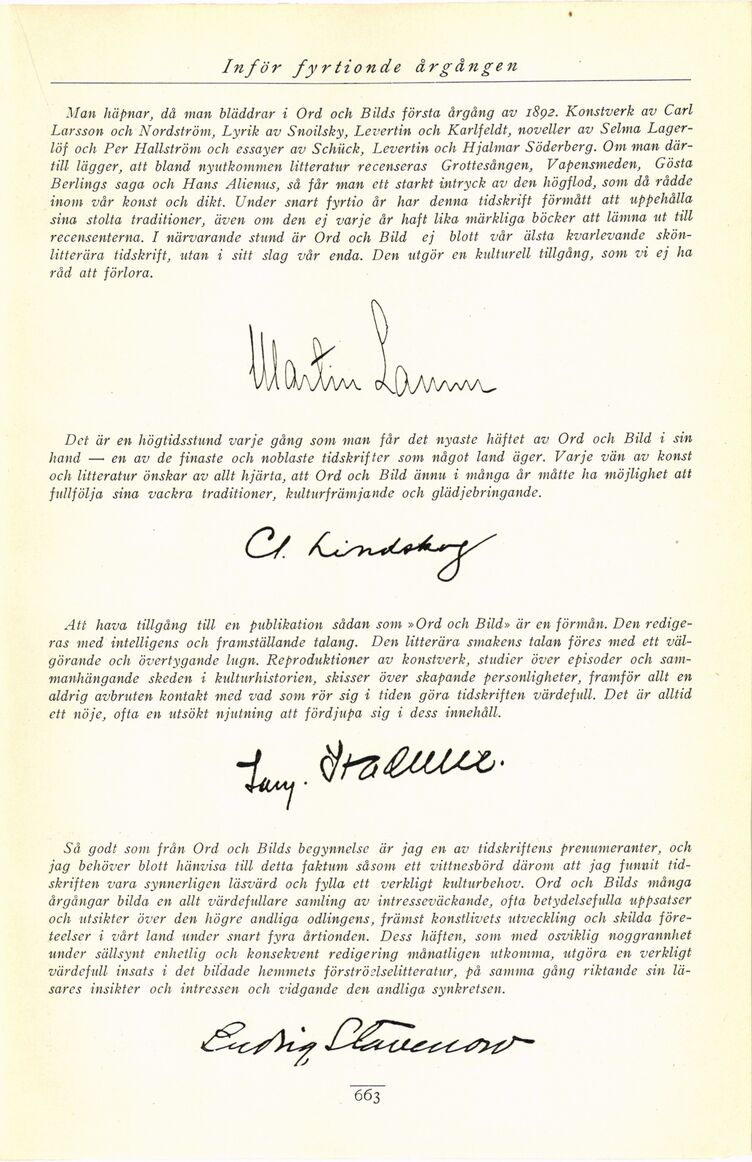 Inför fyrtionde årgången
Man häpnar, då man bläddrar i Ord och Bilds första årgång av 1892. Konstverk av Carl
Larsson och Nordström, Lyrik av Snoilsky, Levertin och Karlfeldt, noveller av Selma Lager-
löf och Per Hallström och essayer av Schück, Levertin och Hjalmar Söderberg. Om man där-
till lägger, att bland nyutkommen litteratur recenseras Grottesången, Vapensmeden, Gösta
Berlings saga och Hans Alienus, så får man ett starkt intryck av den högflod, som då rådde
inom vår konst och dikt. Under snart fyrtio år har denna tidskrift förmått att uppehålla
sina stolta traditioner, även om den ej varje år haft lika märkliga böcker att lämna ut till
recensenterna. I närvarande stund är Ord och Bild ej blott vår älsta kvarlevande skön-
litterära tidskrift, utan i sitt slag vår enda. Den utgör en kulturell tillgång, som vi ej ha
råd att förlora.
Martin Lamm
Det är en högtidsstund varje gång som man får det nyaste häftet av Ord och Bild i sin
hand — en av de finaste och noblaste tidskrifter som något land äger. Varje vän av konst
och litteratur önskar av allt hjärta, att Ord och Bild ännu i många år måtte ha möjlighet att
fullfölja sina vackra traditioner, kulturfrämjande och glädjebringande.
Cl. Lindskog
Att hava tillgång till en publikation sådan som »Ord och Bild» är en förmån. Den redige-
ras med intelligens och framställande talang. Den litterära smakens talan föres med ett väl-
görande och övertygande lugn. Reproduktioner av konstverk, studier över episoder och sam-
manhängande skeden i kulturhistorien, skisser över skapande personligheter, framför allt en
aldrig avbruten kontakt med vad som rör sig i tiden göra tidskriften värdefull. Det är alltid
ett nöje, ofta en utsökt njutning att fördjupa sig i dess innehåll.
Så godt som från Ord och Bilds begynnelse är jag en av tidskriftens prenumeranter, och
jag behöver blott hänvisa till detta faktum såsom ett vittnesbörd därom att jag funnit tid-
skriften vara synnerligen läsvärd och fylla ett verkligt kulturbehov. Ord och Bilds många
årgångar bilda en allt värdefullare samling av intresseväckande, ofta betydelsefulla uppsatser
och utsikter över den högre andliga odlingens, främst konstlivets utveckling och skilda före-
teelser i vårt land under snart fyra årtionden. Dess häften, som med osviklig noggrannhet
under sällsynt enhetlig och konsekvent redigering månatligen utkomma, utgöra en verkligt
värdefull insats i det bildade hemmets förströelselitteratur, på samma gång riktande sin lä-
sares insikter och intressen och vidgande den andliga synkretsen.
Ludvig Stavenow
663